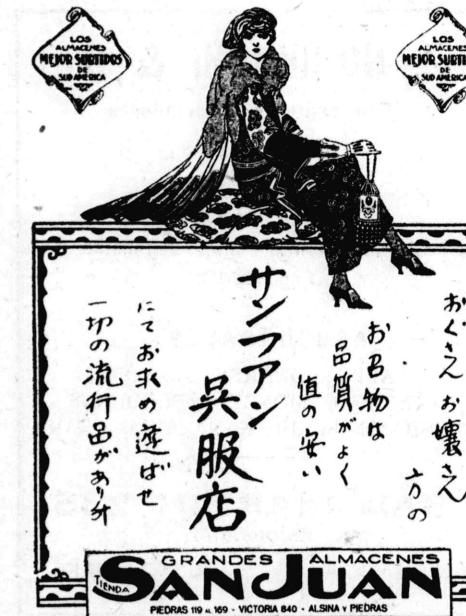 LOS
ALMACENES
MEJOR SURTIDOS
DE
SUD AMERICA
LOS
ALMACENES
MEJOR SURTIDOS
DE
SUD AMERICA
おくさん お嬢さん
方の
お召物は
品質がよく
値の安い
サンフアン
呉服店
にてお求め遊ばせ
一切の流行品があり升
GRANDES ALMACENES
TIENDA
SAN JUAN
PIEDRAS 119 AL 169 - VICTORIA 840 - ALSINA Y PIEDRAS